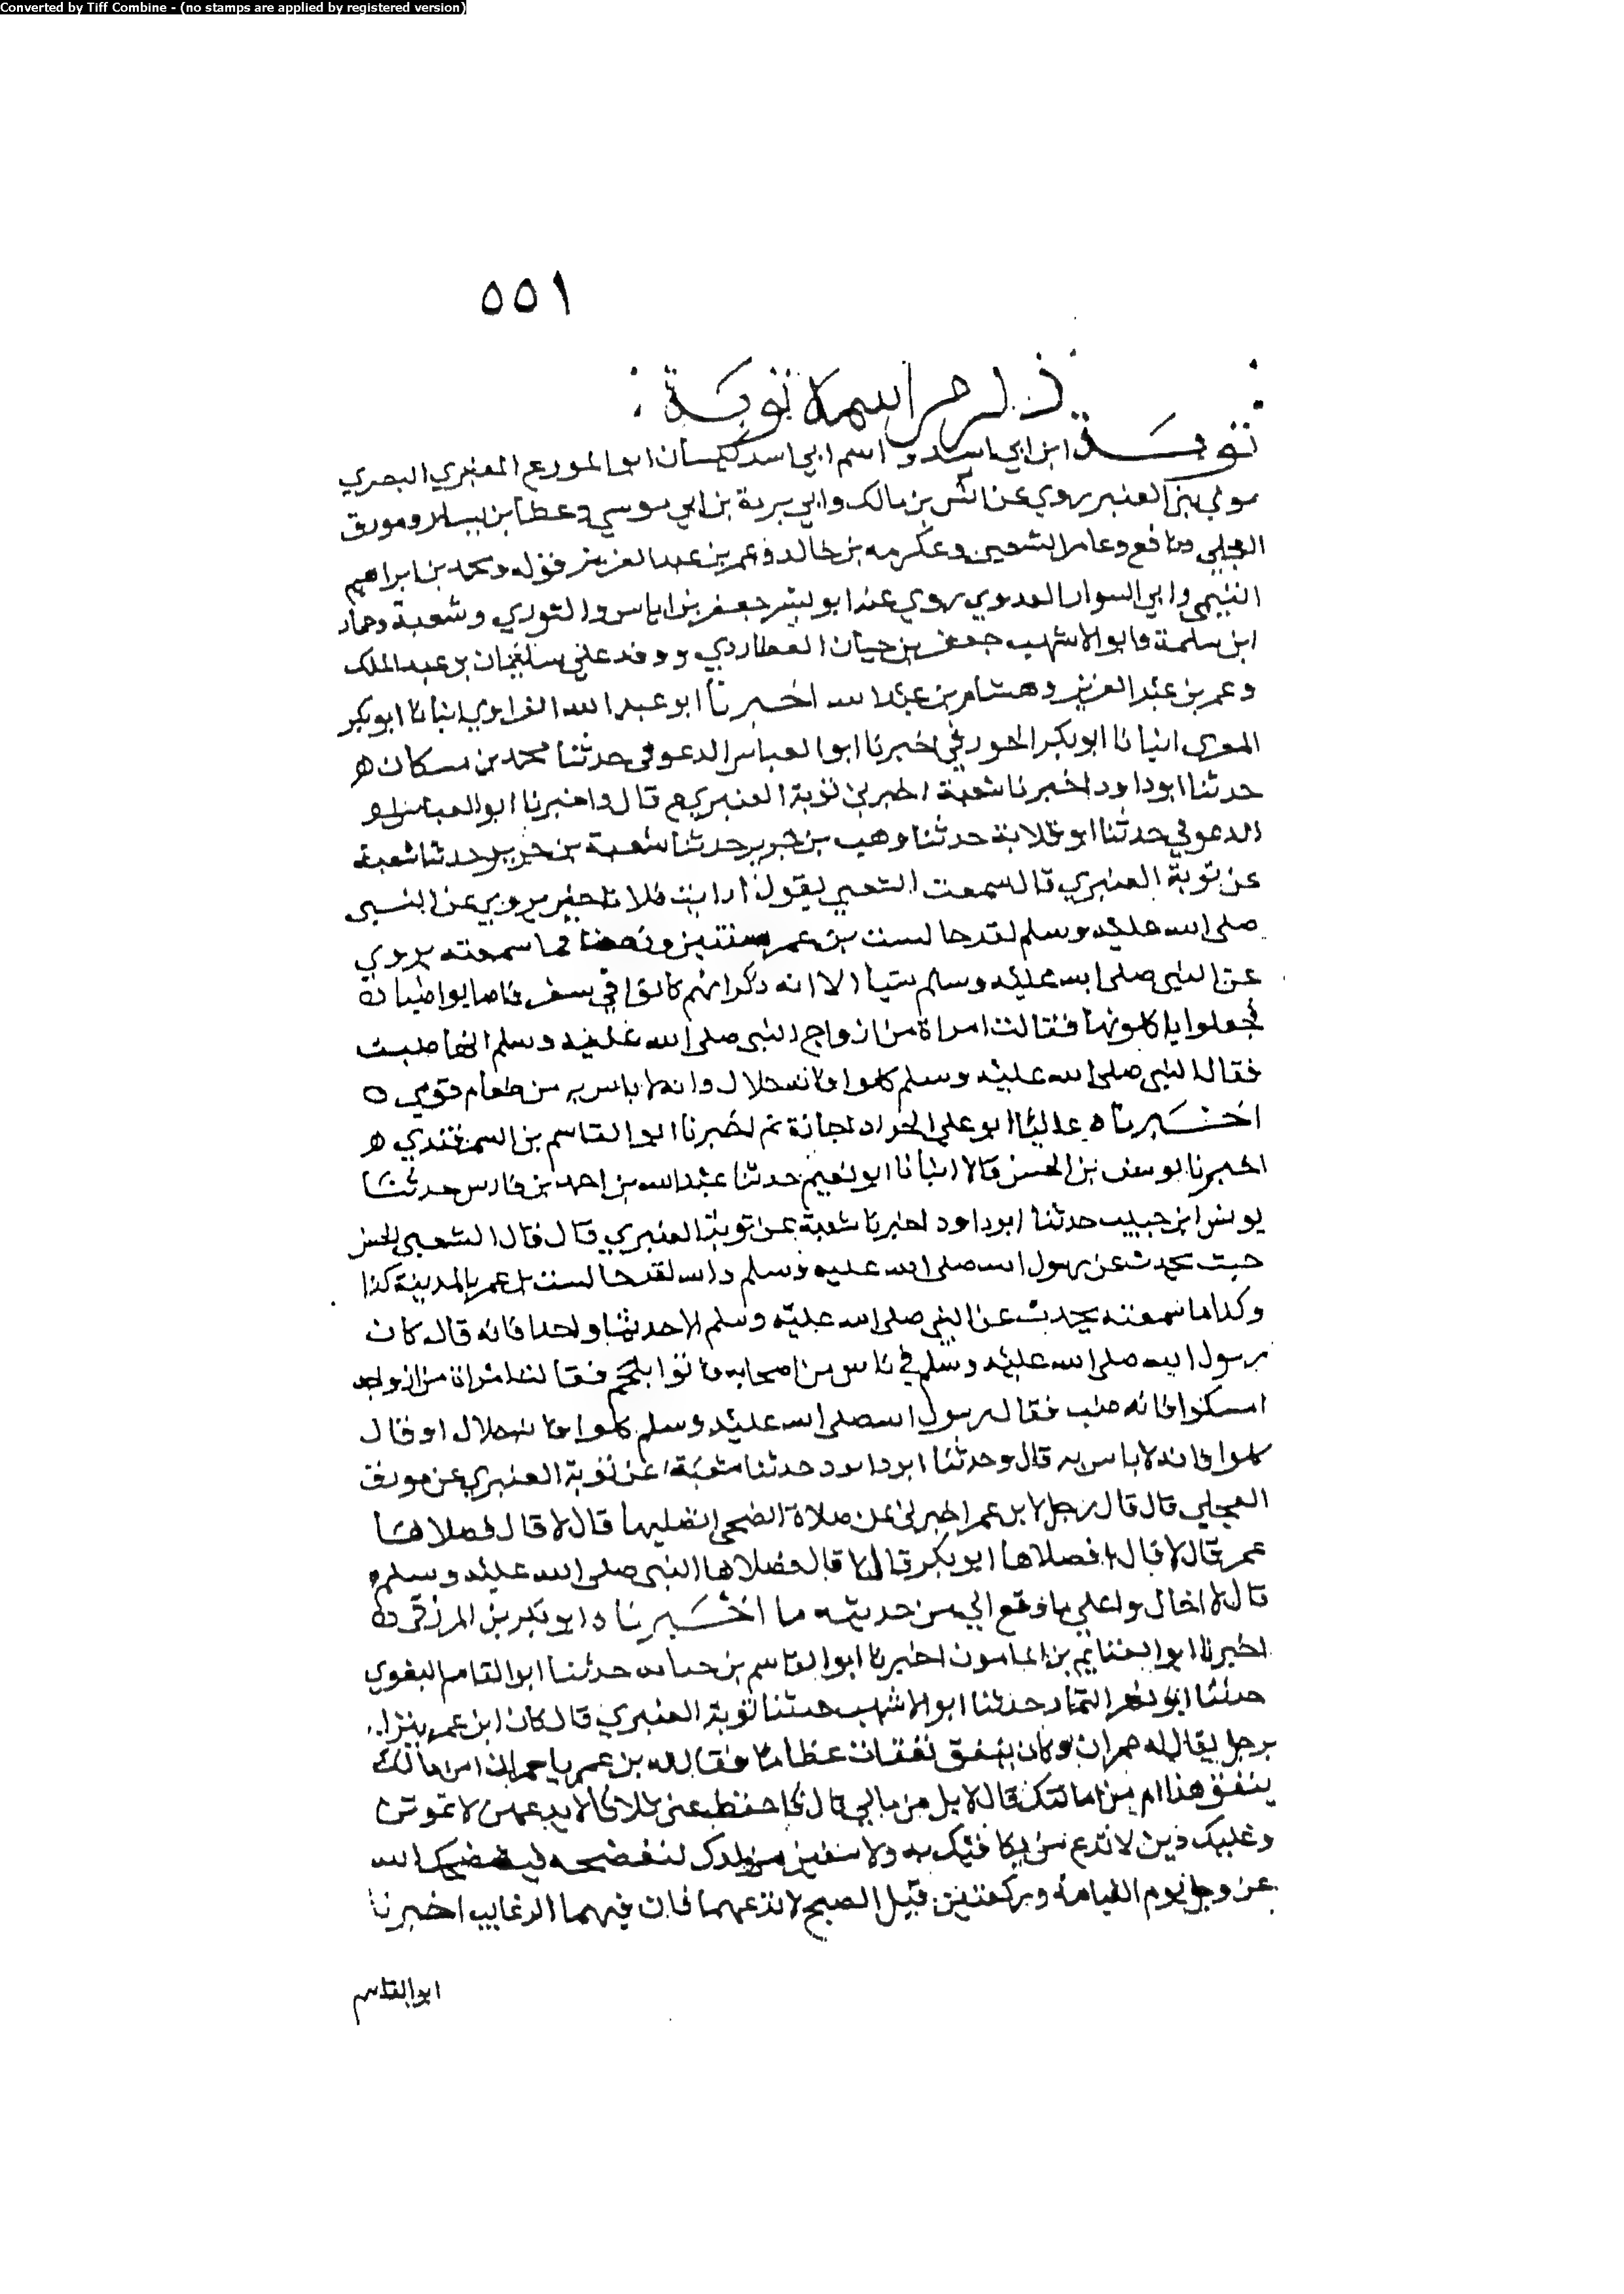 Converted by Tiff Combine - (no stamps are applied by registered version)
٥٥١
ذكر من اسمه توبة
توبة ابن ابي اسد واسم ابي اسد كيسان ابو المورع العنبري البصري
مولى بني العنبر روي عن انس بن مالك وابي بردة بن ابي موسي وعطا بن يسار ومورق
العجلي ونافع وعامر الشعبي وعكرمه بن خالد وعمر بن عبد العزيز قوله ومحمد بن ابراهيم
التيمي وابي السوار العدوي روي عنه ابو بشر جعفر بن اياس والثوري وشعبة وحماد
ابن سلمة وابو الاشهب جعفر بن حيان العطاردي ووفد علي سليمان بن عبد الملك
وعمر بن عبد العزيز وهشام بن عبد اخبرنا ابو عبد الله الفراوي انبانا ابو بكر
انبانا ابو بكر الجوزقي اخبرنا ابو العباس الدغولي حدثنا محمد بن مسكان
حدثنا ابو داود اخبرنا شعبة اخبرني توبة العنبري ح قال واخبرنا ابو العباس
الدغولي حدثنا ابو قلابة حدثنا وهب بن جرير حدثنا شعبة بن جرير حدثنا شعبة
عن توبة العنبري قال سمعت الشعبي يقول ارايت فلانا حين يروي عن النبي
صلى الله عليه وسلم لقد جالست بن عمر سنتين ونصفا فما سمعته يروي
عن النبي صلى الله عليه وسلم شيا الا انه ذكر انهم كانوا في سفر فاصابوا ضبا
فجعلوا ياكلونها فقالت امراة من ازواج النبي صلى الله عليه وسلم انها ضبت
فقال النبي صلى الله عليه وسلم كلوا فانه حلال وانه لا باس به من طعام قومي ٥
اخبرناه عاليا ابو علي الحداد اجازة ثم اخبرنا ابو القاسم بن السمرقندي
اخبرنا يوسف بن الحسن قالا انبانا ابو نعيم حدثنا عبد الله بن احمد بن فارس حدثنا
يونس ابن حبيب حدثنا ابو داود اخبرنا شعبة عن توبة العنبري قال قال الشعبي الحسن
حيث يحدث عن رسول الله صلى الله عليه وسلم والله لقد جالست بن عمر بالمدينة كذا
وكذا ما سمعته يحدث عن النبي صلى الله عليه وسلم الا حديثا واحدا فانه قال كان
رسول الله صلى الله عليه وسلم في ناس من اصحابه فاتوا بلحم فقالت امراة من ازواجه
امسكوا فانه ضب فقال رسول الله صلى الله عليه وسلم كلوا فانه حلال او قال
كلوا فانه لا باس به قال وحدثنا ابو داود حدثنا شعبة عن توبة العنبري عن مورق
العجلي قال قال رجل لابن عمر اخبرني عن صلاة الضحى اتصليها قال لا قال فصلاها
عمر قال لا قال فصلاها ابو بكر قال لا قال فصلاها النبي صلى الله عليه وسلم
قال لا اخال واعلي ما وقع الي من حديثه ما اخبرناه ابو بكر بن المزرقي
اخبرنا ابو الغنايم بن المامون اخبرنا ابو القاسم بن حبابه حدثنا ابو القاسم البغوي
حدثنا ابو نصر التمار حدثنا ابو الاشهب حدثنا توبة العنبري قال كان ابن عمر
برجل يقال له حمران وكان ينفق نفقات عظاما فقال له بن عمر يا حمران امن مالك
ينفق هذا ام من امانتك قال لا بل من مالي قال فاحفظ عني ثلاثا لا تدعهن لا تموتن
وعليك دين لا تدع من يكافيك به ولا تنفين من ولدك لتفضحه فيفضحك الله
عز وجل يوم القيامة وركعتين قبل الصبح لا تدعهما فان فيهما الرغايب اخبرنا
ابو القاسم